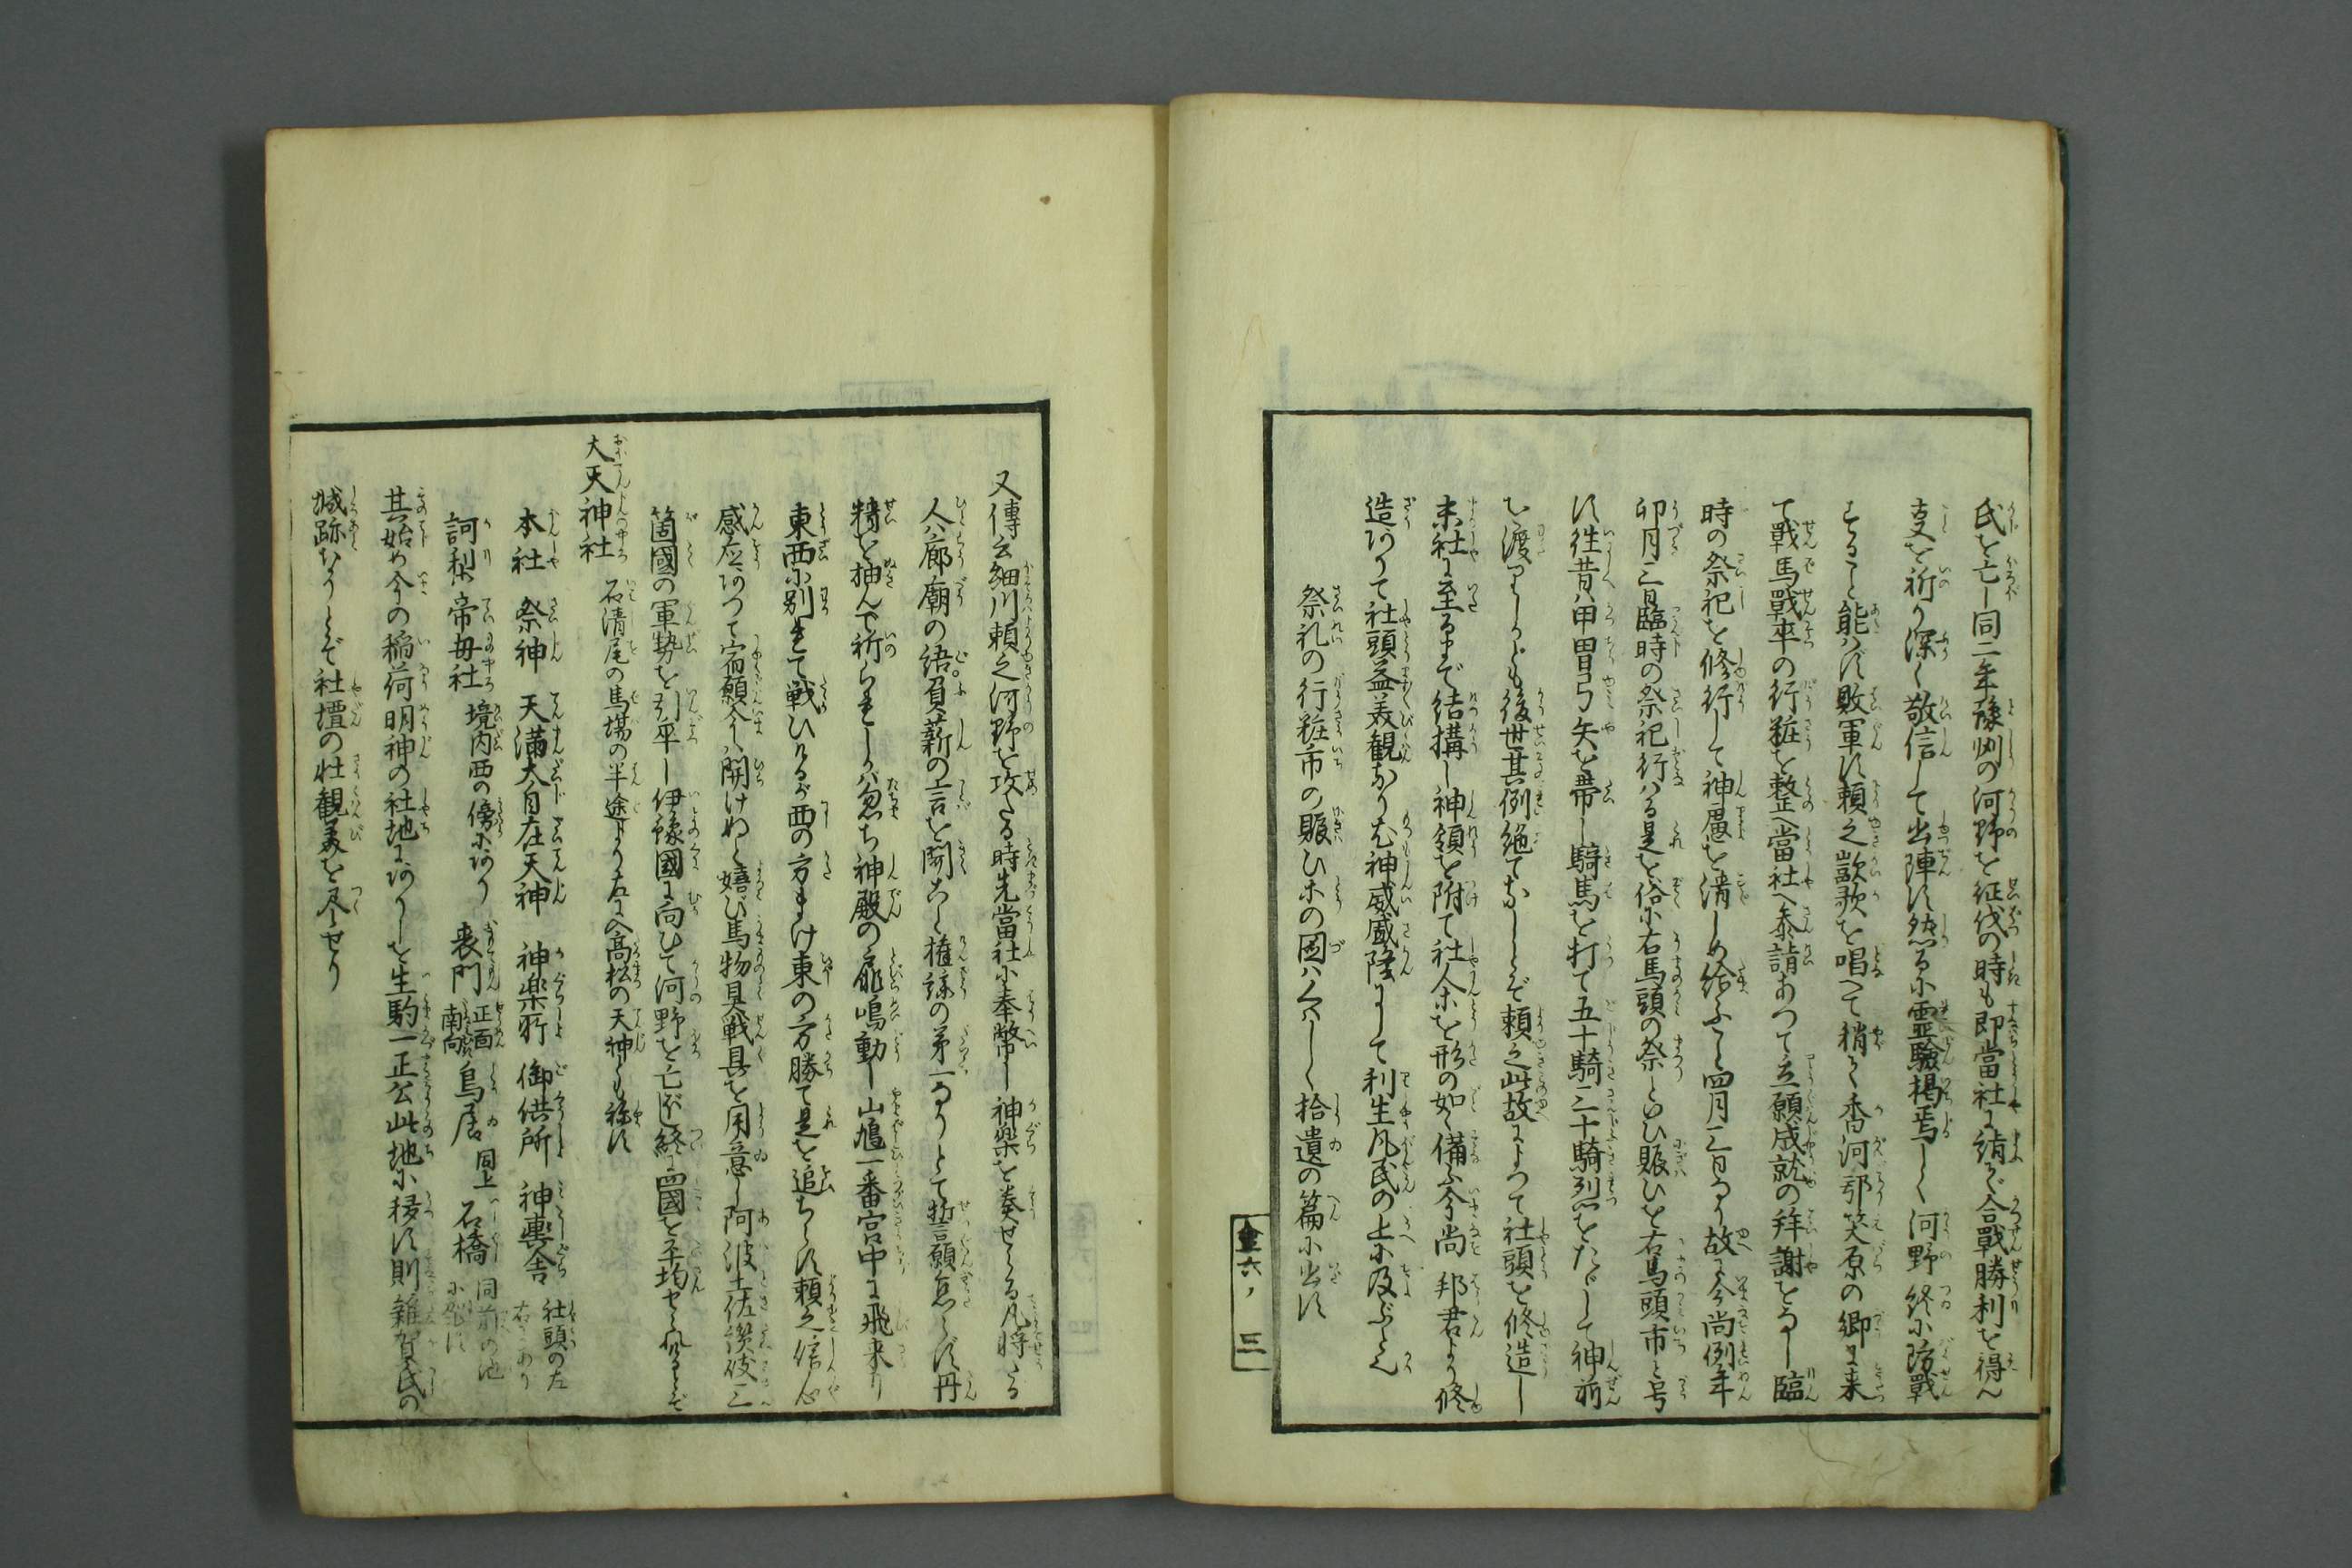 氏を亡し同二年豫州の河野を征伐の時も即當社に請て合戰勝利を得ん
支を祈り深く敬信して出陣す然るに霊驗掲焉しく河野終に防戰
すること能はず敗軍す頼之歡歌を唱へて稍々香河郡笑原の郷に来
て戰馬戰卒の行粧を整へ當社へ参詣あつて立願成就の拜謝をなし臨
時の祭祀を修行して神慮を清しめ給ふこと四月三日なり故に今尚例年
卯月三日臨時の祭祀行はる是を俗に右馬頭の祭といひ賑ひを右馬頭市と号
す徃昔は甲冑弓矢を帯し騎馬を打て五十騎三十騎列をたゞして神前
を渡りしかども後世其例絶てなしとぞ頼之此故によつて社頭を修造し
末社に至るまで結構し神領を附て社人等を形の如く備ふ今尚 邦君より修
造ありて社頭益美観なり尤神威盛隆にして利生凡民の上に及ぶと云
祭礼の行粧市の賑ひ等の図はくはしく拾遺の篇に出す
六ノ 三
又傳云細川頼之河野を攻たる時先當社に奉幣し神樂を奏せらる凡將たる
人は廊廟の語負薪の言を聞こと権謀の第一なりとて誓願怠らず丹
精を抽んで祈られしかば忽ち神殿の扉鳴動し山鳩一番宮中に飛来り
東西に別れて戦ひけるが西の方まけ東の方勝て是を追ちらす頼之信心
感应あつて宿願今は開けぬと嬉び馬物具戦具を用意し阿波土佐讃岐三
箇國の軍勢を引率し伊豫國に向ひて河野を亡ぼし終に四國を平均せられるとぞ
大天神社 石清尾の馬場の半途より左に入高松の天神とも称す
本社 祭神 天満大自在天神 神楽所 御供所 神輿舎 社頭の左右にあり
訶梨帝母社 境内西の傍にあり 表門 正面南向 鳥居 同上 石橋 同前の池に架す
其始め今の稲荷明神の社地にありしを生駒一正公此地に移す則雜賀氏の
城跡なりとぞ社壇の壮観美を尽せり